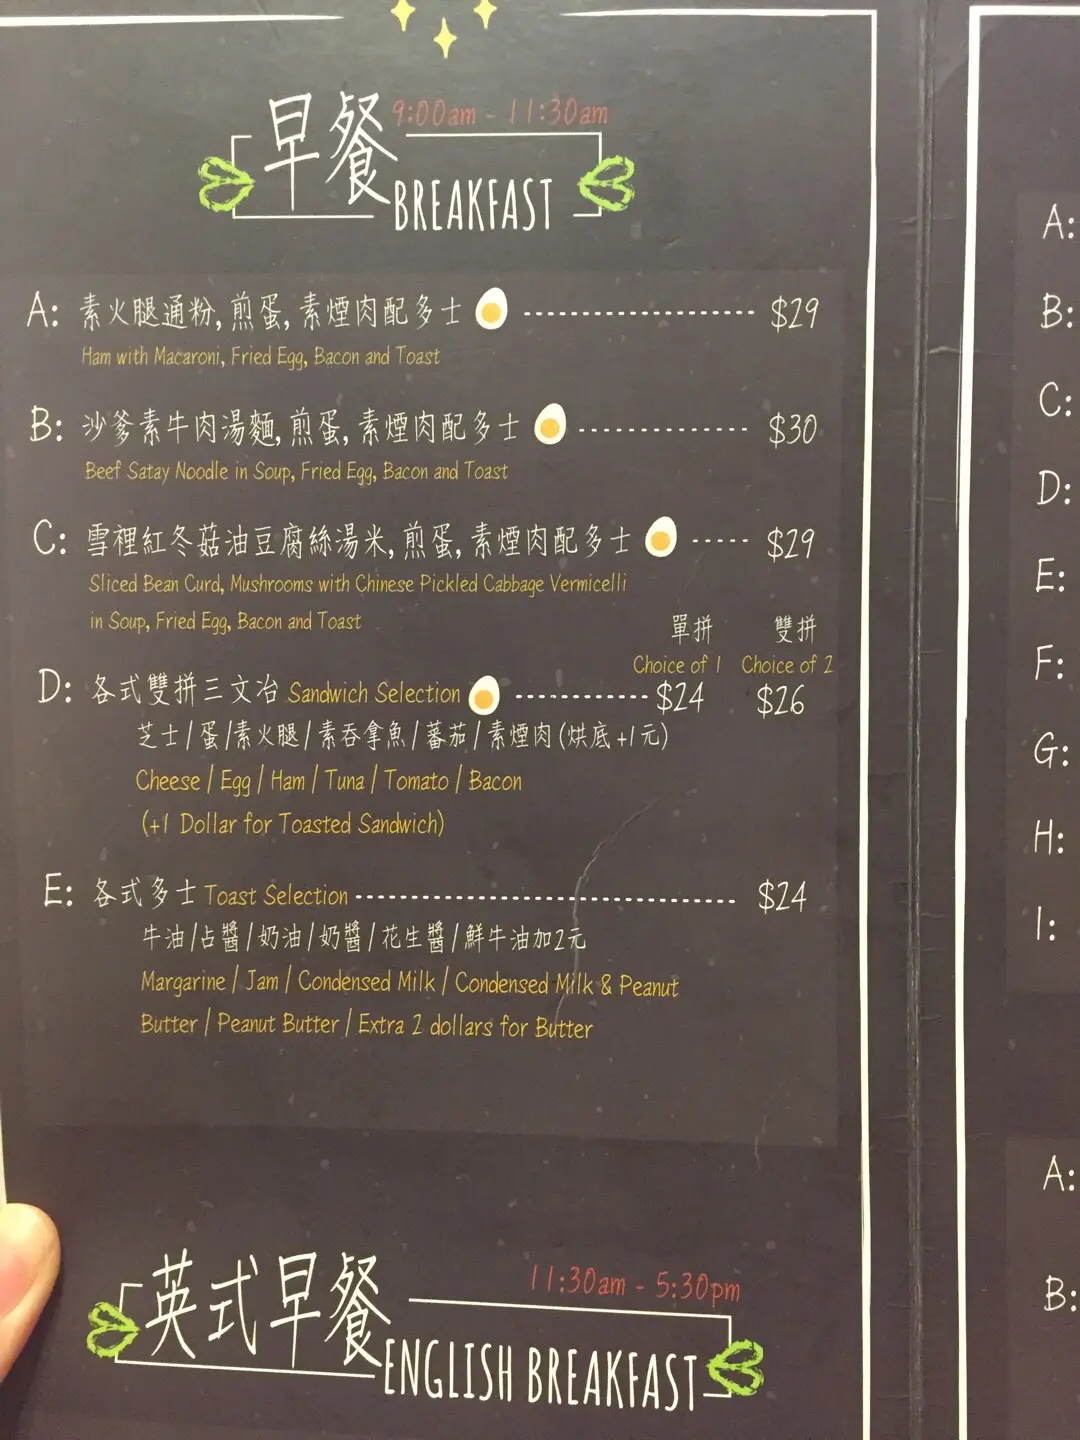 早餐 9:00am - 11:30am
BREAKFAST
A: 素火腿通粉, 煎蛋, 素煙肉配多士 $29
Ham with Macaroni, Fried Egg, Bacon and Toast
B: 沙爹素牛肉湯麵, 煎蛋, 素煙肉配多士 $30
Beef Satay Noodle in Soup, Fried Egg, Bacon and Toast
C: 雪裡紅冬菇油豆腐絲湯米, 煎蛋, 素煙肉配多士 $29
Sliced Bean Curd, Mushrooms with Chinese Pickled Cabbage Vermicelli
in Soup, Fried Egg, Bacon and Toast
單拼 雙拼
Choice of 1 Choice of 2
D: 各式雙拼三文冶 Sandwich Selection $24 $26
芝士/蛋/素火腿/素吞拿魚/蕃茄/素煙肉(烘底+1元)
Cheese / Egg / Ham / Tuna / Tomato / Bacon
(+1 Dollar for Toasted Sandwich)
E: 各式多士 Toast Selection $24
牛油/占醬/奶油/奶醬/花生醬/鮮牛油加2元
Margarine / Jam / Condensed Milk / Condensed Milk & Peanut
Butter / Peanut Butter / Extra 2 dollars for Butter
英式早餐 11:30am - 5:30pm
ENGLISH BREAKFAST
A:
B:
C:
D:
E:
F:
G:
H:
I:
A:
B: